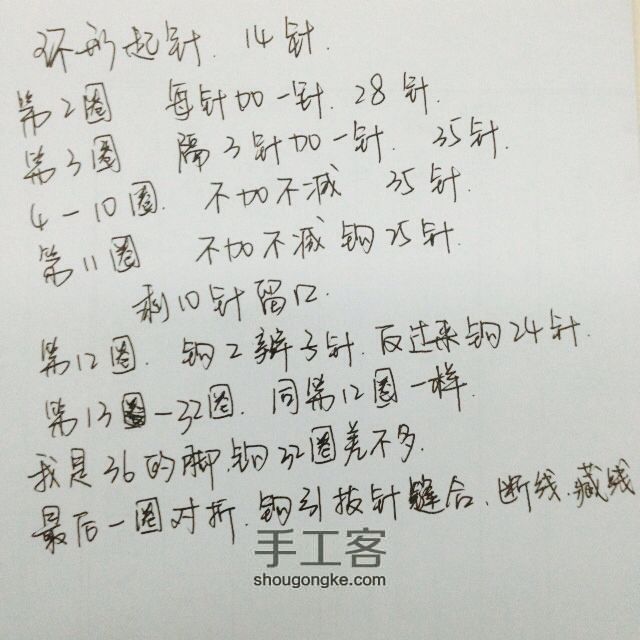 环形起针. 14针.
第2圈 每针加一针. 28针.
第3圈 隔3针加一针. 35针.
4-10圈. 不加不减 35针.
第11圈 不加不减钩25针.
剩10针留口.
第12圈. 钩2辫子针. 反过来钩24针.
第13圈-32圈. 同第12圈一样.
我是36的脚.钩32圈差不多.
最后一圈对折.钩引拔针缝合、断线.藏线
手工客
shougongke.com